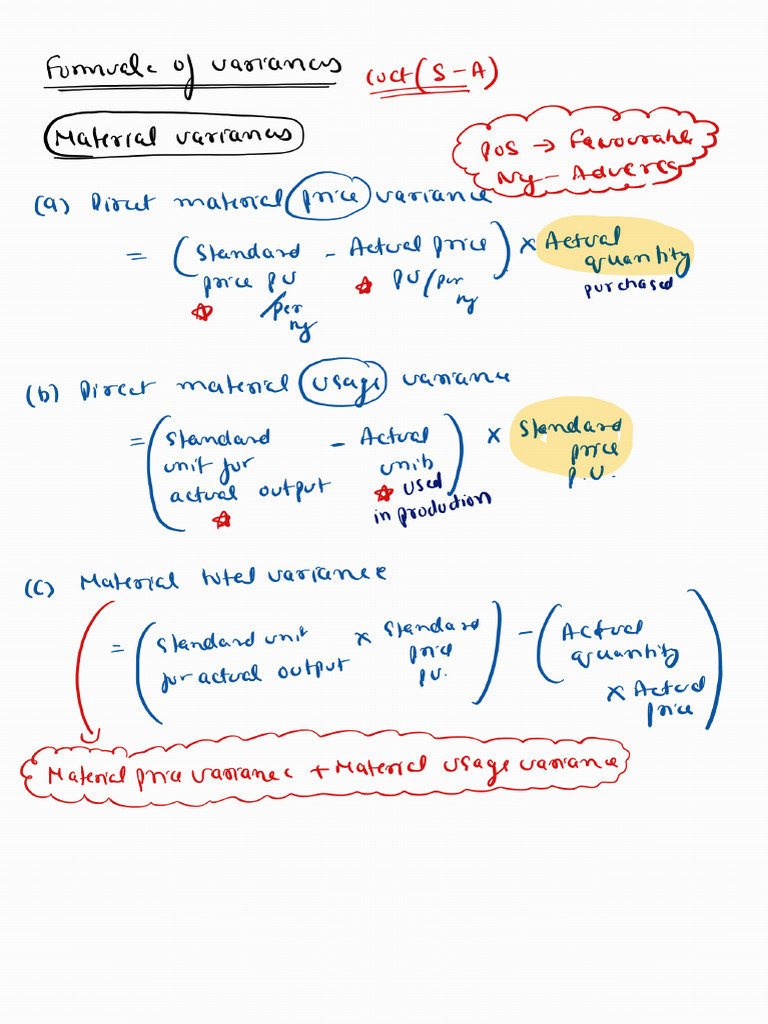 Formulae of variances cost (S-A)
Material variances
Pos → Favourable
Ng - Adverse
(a) Direct material price variance
= (Standard price pu /per ng - Actual price pu/per ng) × Actual quantity purchased
(b) Direct material usage variance
= (Standard unit for actual output - Actual units used in production) × Standard price p.u.
(c) Material total variance
= (Standard unit for actual output × Standard price pu.) - (Actual quantity × Actual price)
Material price variance + Material usage variance